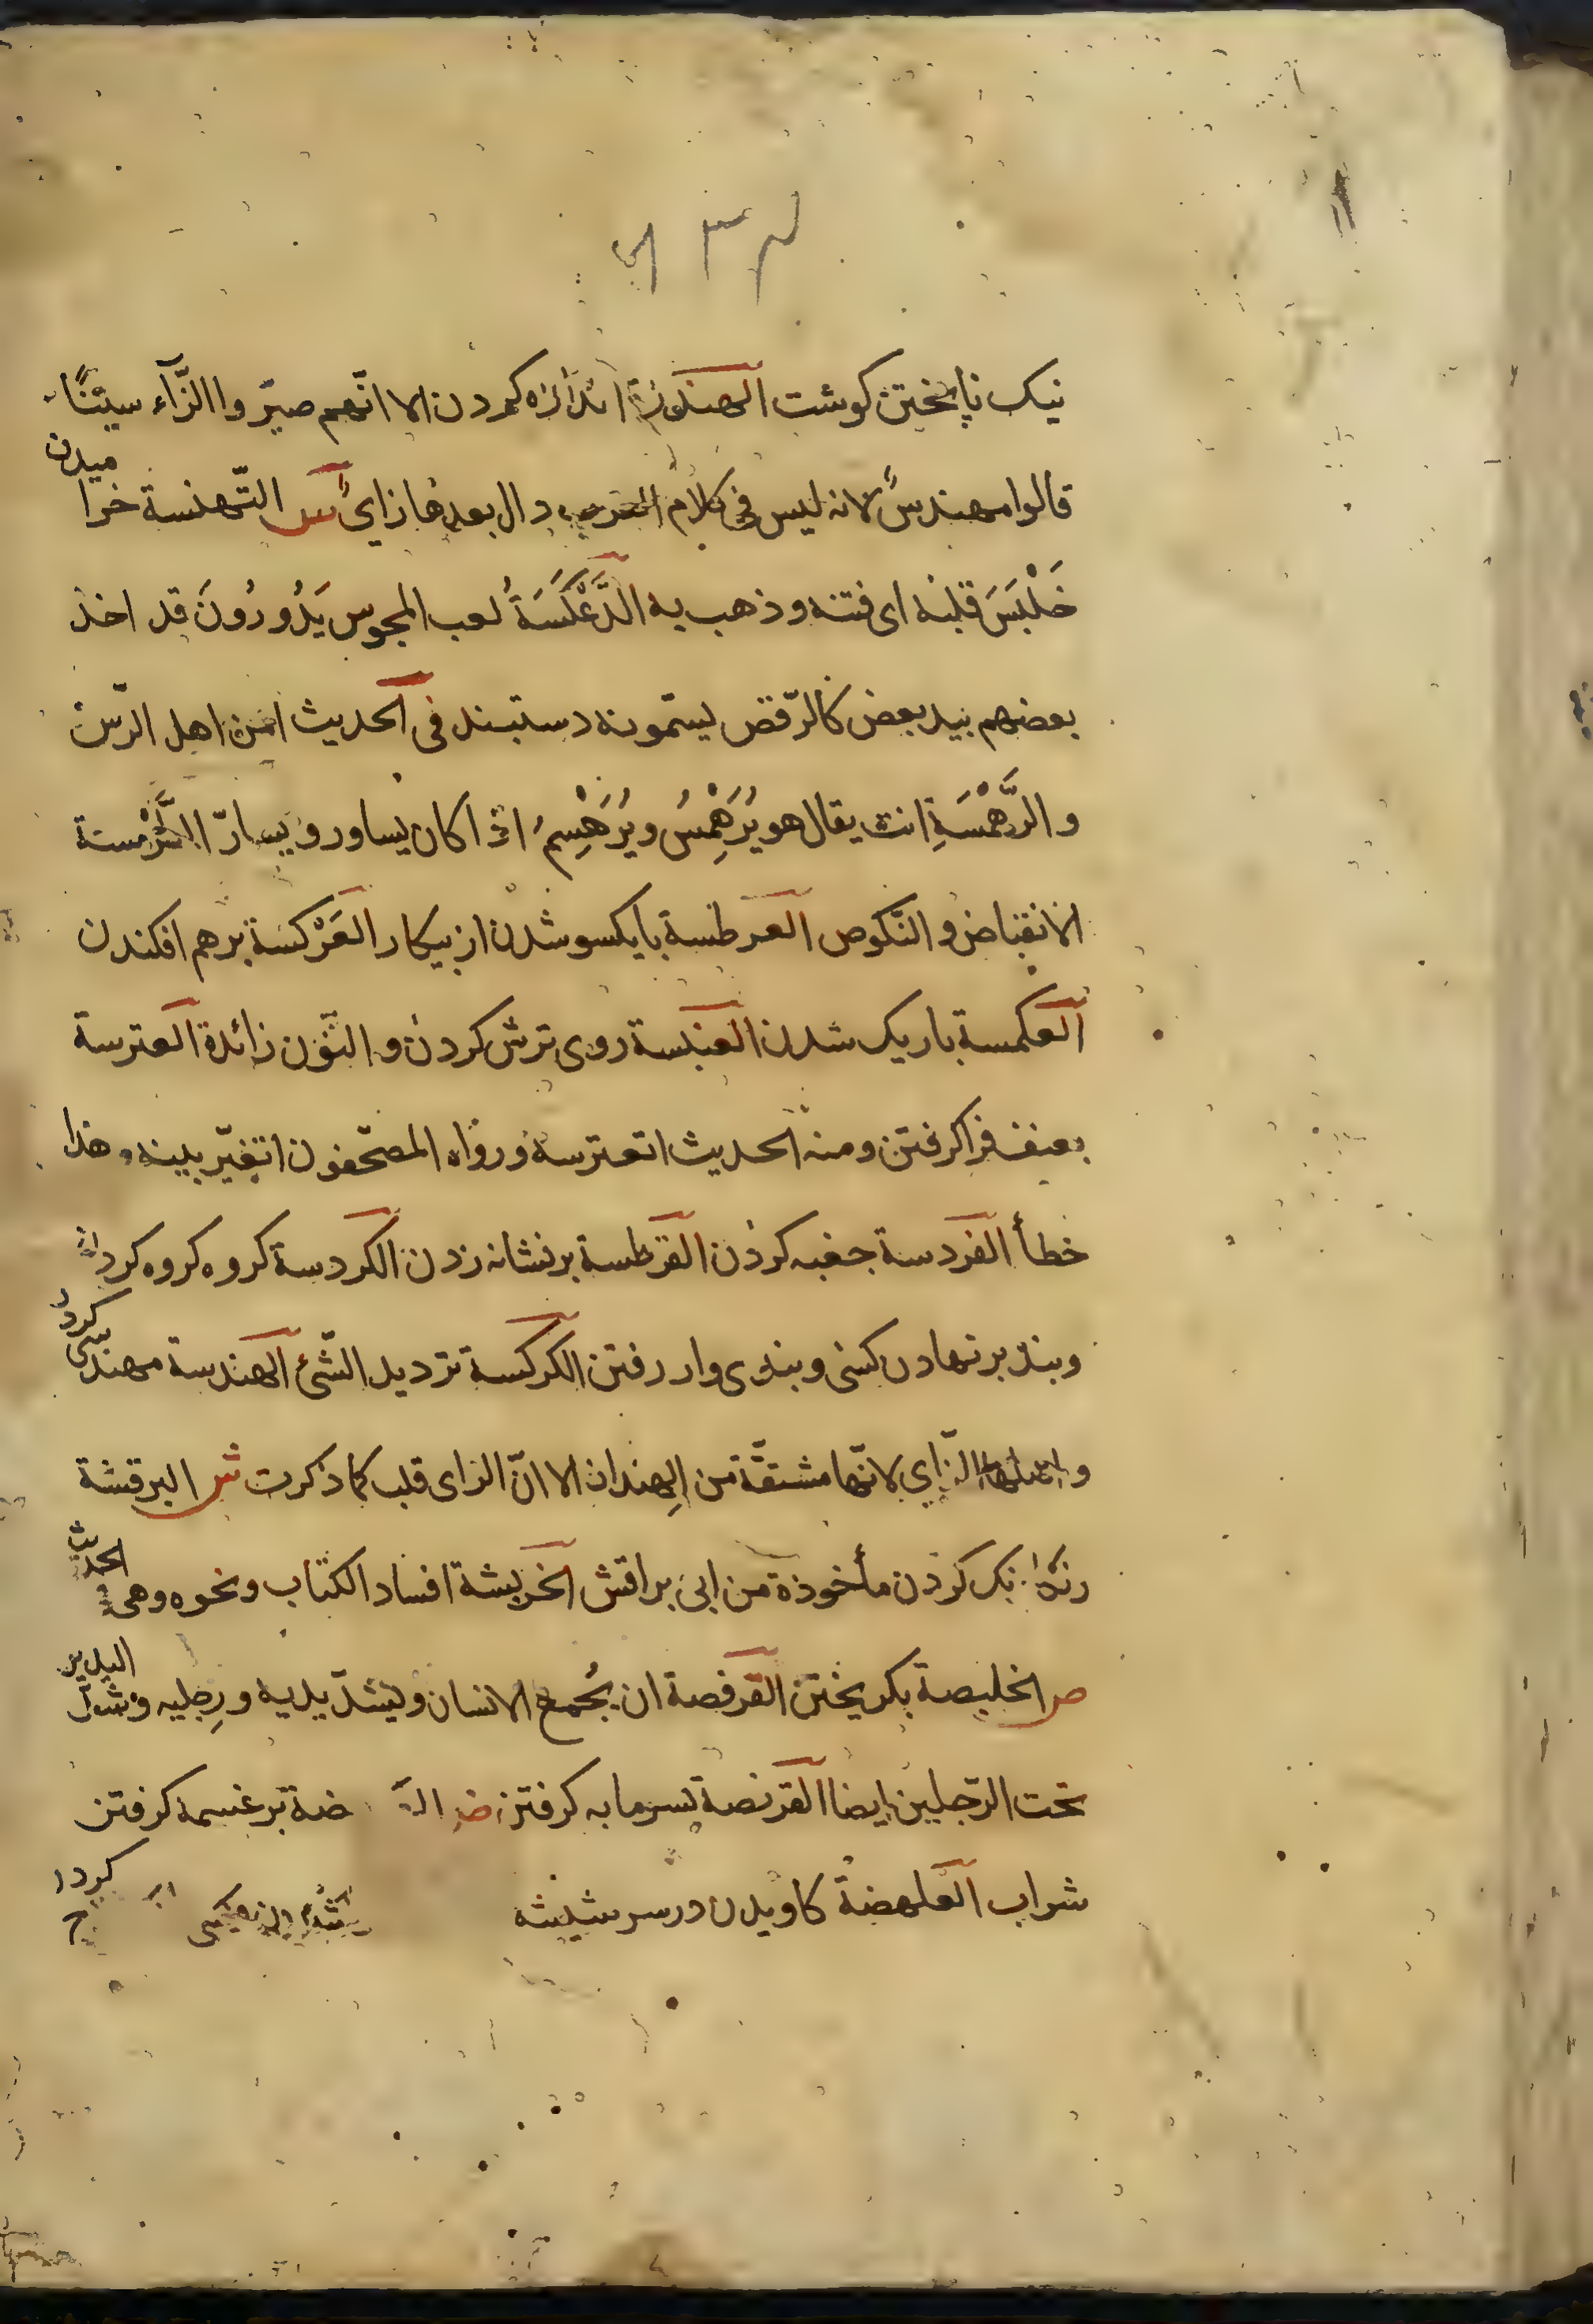 نیک ناپختن کوشت الهندزة اندازه کردن الا انّهم صیّروا الزّاء سینًا
قالوا مهندسٌ لانه لیس فی کلام العرب دال بعدها زای س التّهنسة خرامیدن
خَلْبَسَ قلبَه ای فتنه و ذهب به الدَّعْکَسَةُ لعب المجوس یَدُورُونَ قد اخذ
بعضهم بید بعض کالرّقص یسمّونه دستبند فی الحدیث امن اهل الرّسّ
و الرَّهْمَسَةِ انت یقال هو یُرَهْمِسُ و یُرَهْسِمُ اذا کان یساور و یسارّ الخَرْمسة
الانقباض و النّکوص العرطسة بایکسو شدن از بیکار العَرْکسَة برهم افکندن
العکمسة باریک شدن العنبسة روی ترش کردن و النّون زائدة العترسة
بعنف فرا کرفتن و منه الحدیث اتعترسه و رواه المصحّفون ابغیر بینه و هذا
خطأ الفردسة جفبه کردن القرطسة بر نشانه زدن الکردسة کروه کروه کردن
و بند بر نهادن کسی و بندی وار رفتن الکرکسة تردید الشّئ الهندسة مهندسی کردن
و اصلها الزّای لانّها مشتقّة من الهنداز الا انّ الزای قلب کما ذکرت ش البرقشة
رنک رنک کردن مأخوذة من ابی براقش الخربشة افساد الکتاب و نحوه و هی الحدیث
ص الخلبصة بکریختن القرفصة ان یُجمع الانسان و یشدّ یدیه و رِجلیه و شدّ الیدین
تحت الرّجلین ایضا القرنصة بسرما به کرفتن ض ضة بر غسمه کرفتن
شراب العلهضة کاویدن در سر شیشه